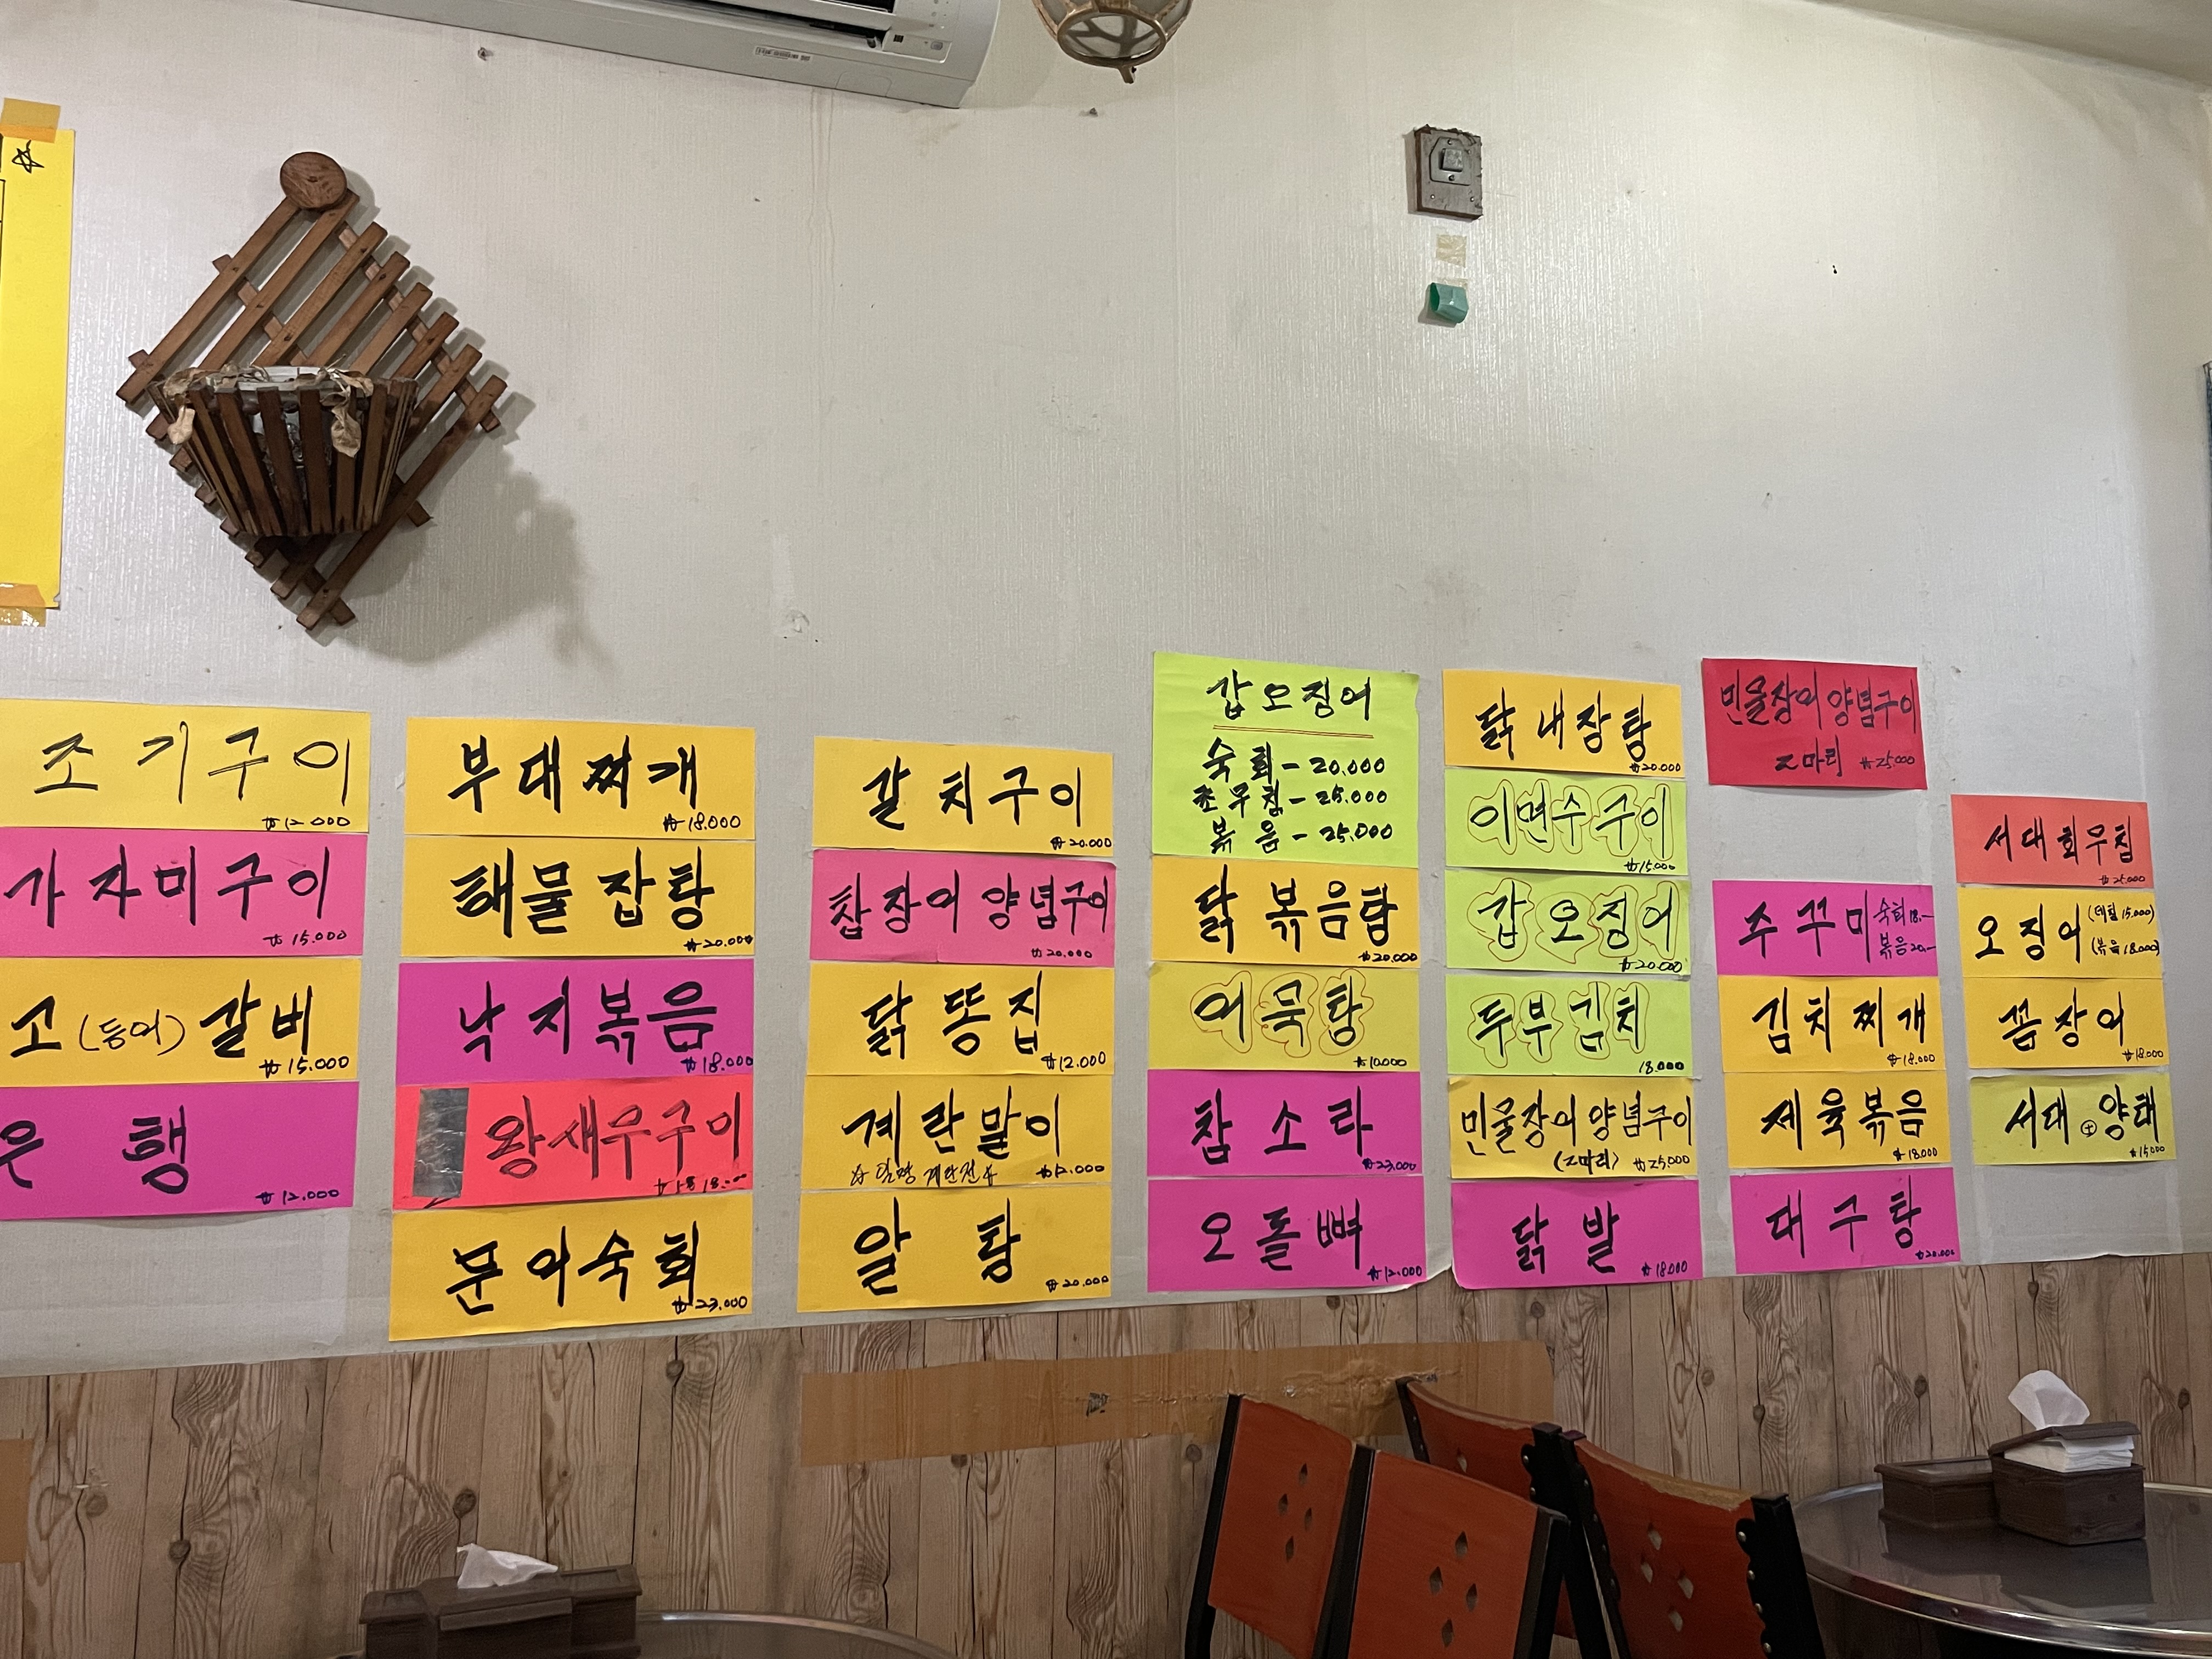 조기구이
₩12.000
가자미구이
₩15.000
소(등어)갈비
₩15.000
은행
₩12.000
부대찌개
₩18.000
해물 잡탕
₩20.000
낙지볶음
₩18.000
왕새우구이
문어숙회
₩23.000
갈치구이
₩20.000
참장어 양념구이
₩20.000
닭똥집
₩12.000
계란말이
₩12.000
알탕
₩20.000
갑오징어
숙회 - 20.000
초무침 - 25.000
볶음 - 25.000
닭볶음탕
₩20.000
어묵탕
₩10.000
참소라
₩23.000
오돌뼈
₩12.000
닭내장탕
₩20.000
이면수구이
₩15.000
갑오징어
₩20.000
두부김치
18.000
민물장어 양념구이
(2마리) ₩25.000
닭발
₩18.000
민물장어 양념구이
2마리 ₩25.000
주꾸미 숙회 18.-
볶음 20.-
김치찌개
₩18.000
제육볶음
₩18.000
대구탕
₩20.000
서대회무침
₩25.000
오징어 (데침 15.000)
(볶음 18.000)
꼼장어
₩18.000
서대 + 양태
₩15.000